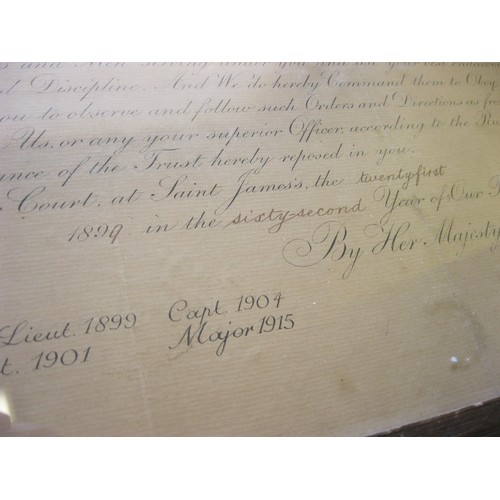 and Men serving under you and use your best endeavours
Discipline. And We do hereby Command them to Obey
you to observe and follow such Orders and Directions as
Us, or any your superior Officer, according to the
of the Trust hereby reposed in you.
Court, at Saint James's, the twentyfirst
1899 in the sixty-second Year of Our
By Her Majesty
Lieut. 1899 Capt. 1904
t. 1901 Major 1915